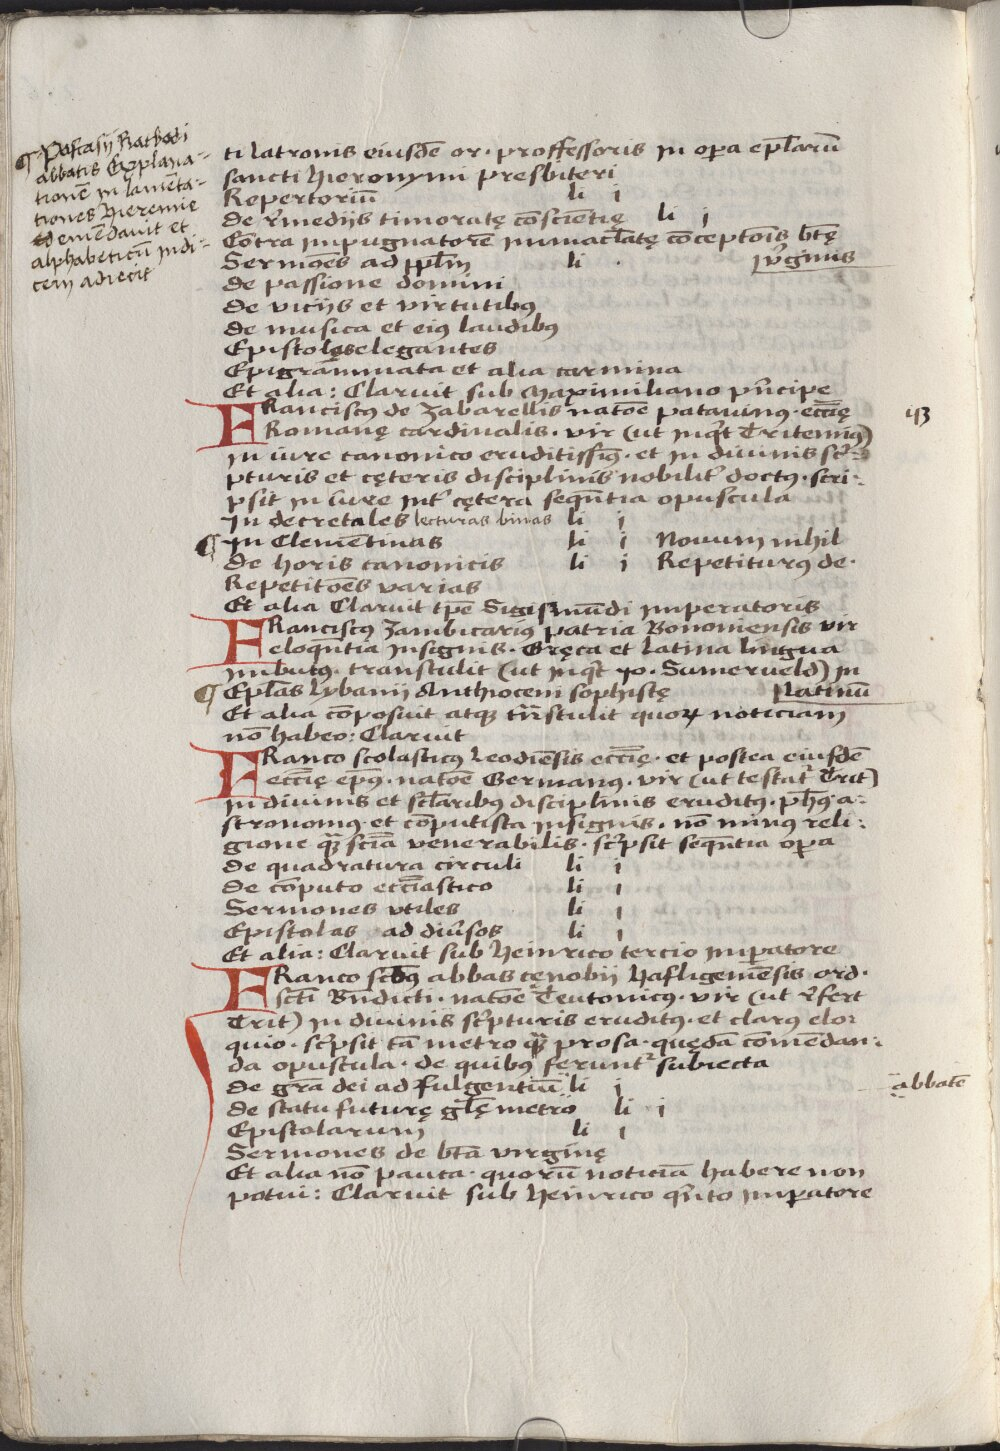 ¶ Pascasij Ratbodi
abbatis Explana-
tionē in lamēta-
tiones Hieremie
emēdauit et
alphabeticū indi-
cem adiecit
ti latronis eiusdē or. proffessoris in opa epl̄arū
sancti Hieronymi presbiteri
Repertoriū li i
de r̄medijs timoratę cōsciētię li i
Cōtra impugnatorē immacl̄atę cōceptōis btę̄
v̓ginis
Sermōes ad ppl̄m li .
de passione domini
de vicijs et virtutibꝰ
de musica et eiꝰ laudibꝰ
Epistolas elegantes
Epigrāmmata et alia carmina
Et alia: Claruit sub Maximiliano pn̄cipe
Franciscꝰ de Zabarellis natōe patauinꝰ. eccl̄ię
Romanę cardinalis. vir (ut inq̓t Tritemiꝰ)
in iure canonico eruditissimꝰ. et in diuinis sc̓i-
pturis et cęteris disciplinis nobilit̓ doctꝰ. scri-
psit in iure int̓ cętera seqn̄tia opuscula
In decretales lecturas binas li i
¶ In Clemētinas li i Nouum nihil
de horis canonicis li i Repetiturꝰ de.
Repetitōes varias
Et alia Claruit tpē Sigismūdi imperatoris
Franciscꝰ Zambicariꝰ patria Bononiensis vir
eloqn̄tia insignis. Gręca et latina lingua
imbutꝰ. transtulit (ut inq̓t Jo. Sumerueld) in
Latinū
¶ Epl̄as Lybanij Anthioceni sophistę
Et alia cōposuit atqꝫ trn̄stulit quoꝝ noticiam
nō habeo: Claruit
Franco scolasticꝰ Leodiēsis eccl̄ię. et postea eiusdē
eccl̄ię ep̄ꝰ. natōe Germanꝰ. vir (ut testat̓ Trit)
in diuinis et scl̄aribꝰ disciplinis eruditꝰ. ph̄ꝰ a-
stronomꝰ et cōputista insignis. nō minꝰ reli-
gione qꝫ̄ scīa venerabilis. sc̓psit seqn̄tia opa
de quadratura circuli li i
de cōputo eccl̄iastico li i
Sermones vtiles li i
Epistolas ad diu̓sos li i
Et alia: Claruit sub Heinrico tercio impatore
Franco scdꝰ̄ abbas cęnobij Hafligemēsis ord.
scti̅ Bn̄dicti. natōe Teutonicꝰ. vir (ut r̄fert
Trit) in diuinis sc̓pturis eruditꝰ. et clarꝰ elo-
quio. sc̓psit tā metro qꝫ̄ prosa. quędā cōmēdan-
da opuscula. de quibꝰ ferunt̓ subiecta
de gr̄a dei ad Fulgentiū li i
abbatē
de statu futurę gl̄ę metro li i
Epistolarum li i
Sermones de btā virginę
Et alia nō pauca. quorū noticiā habere non
potui: Claruit sub Heinrico q̓nto impatore